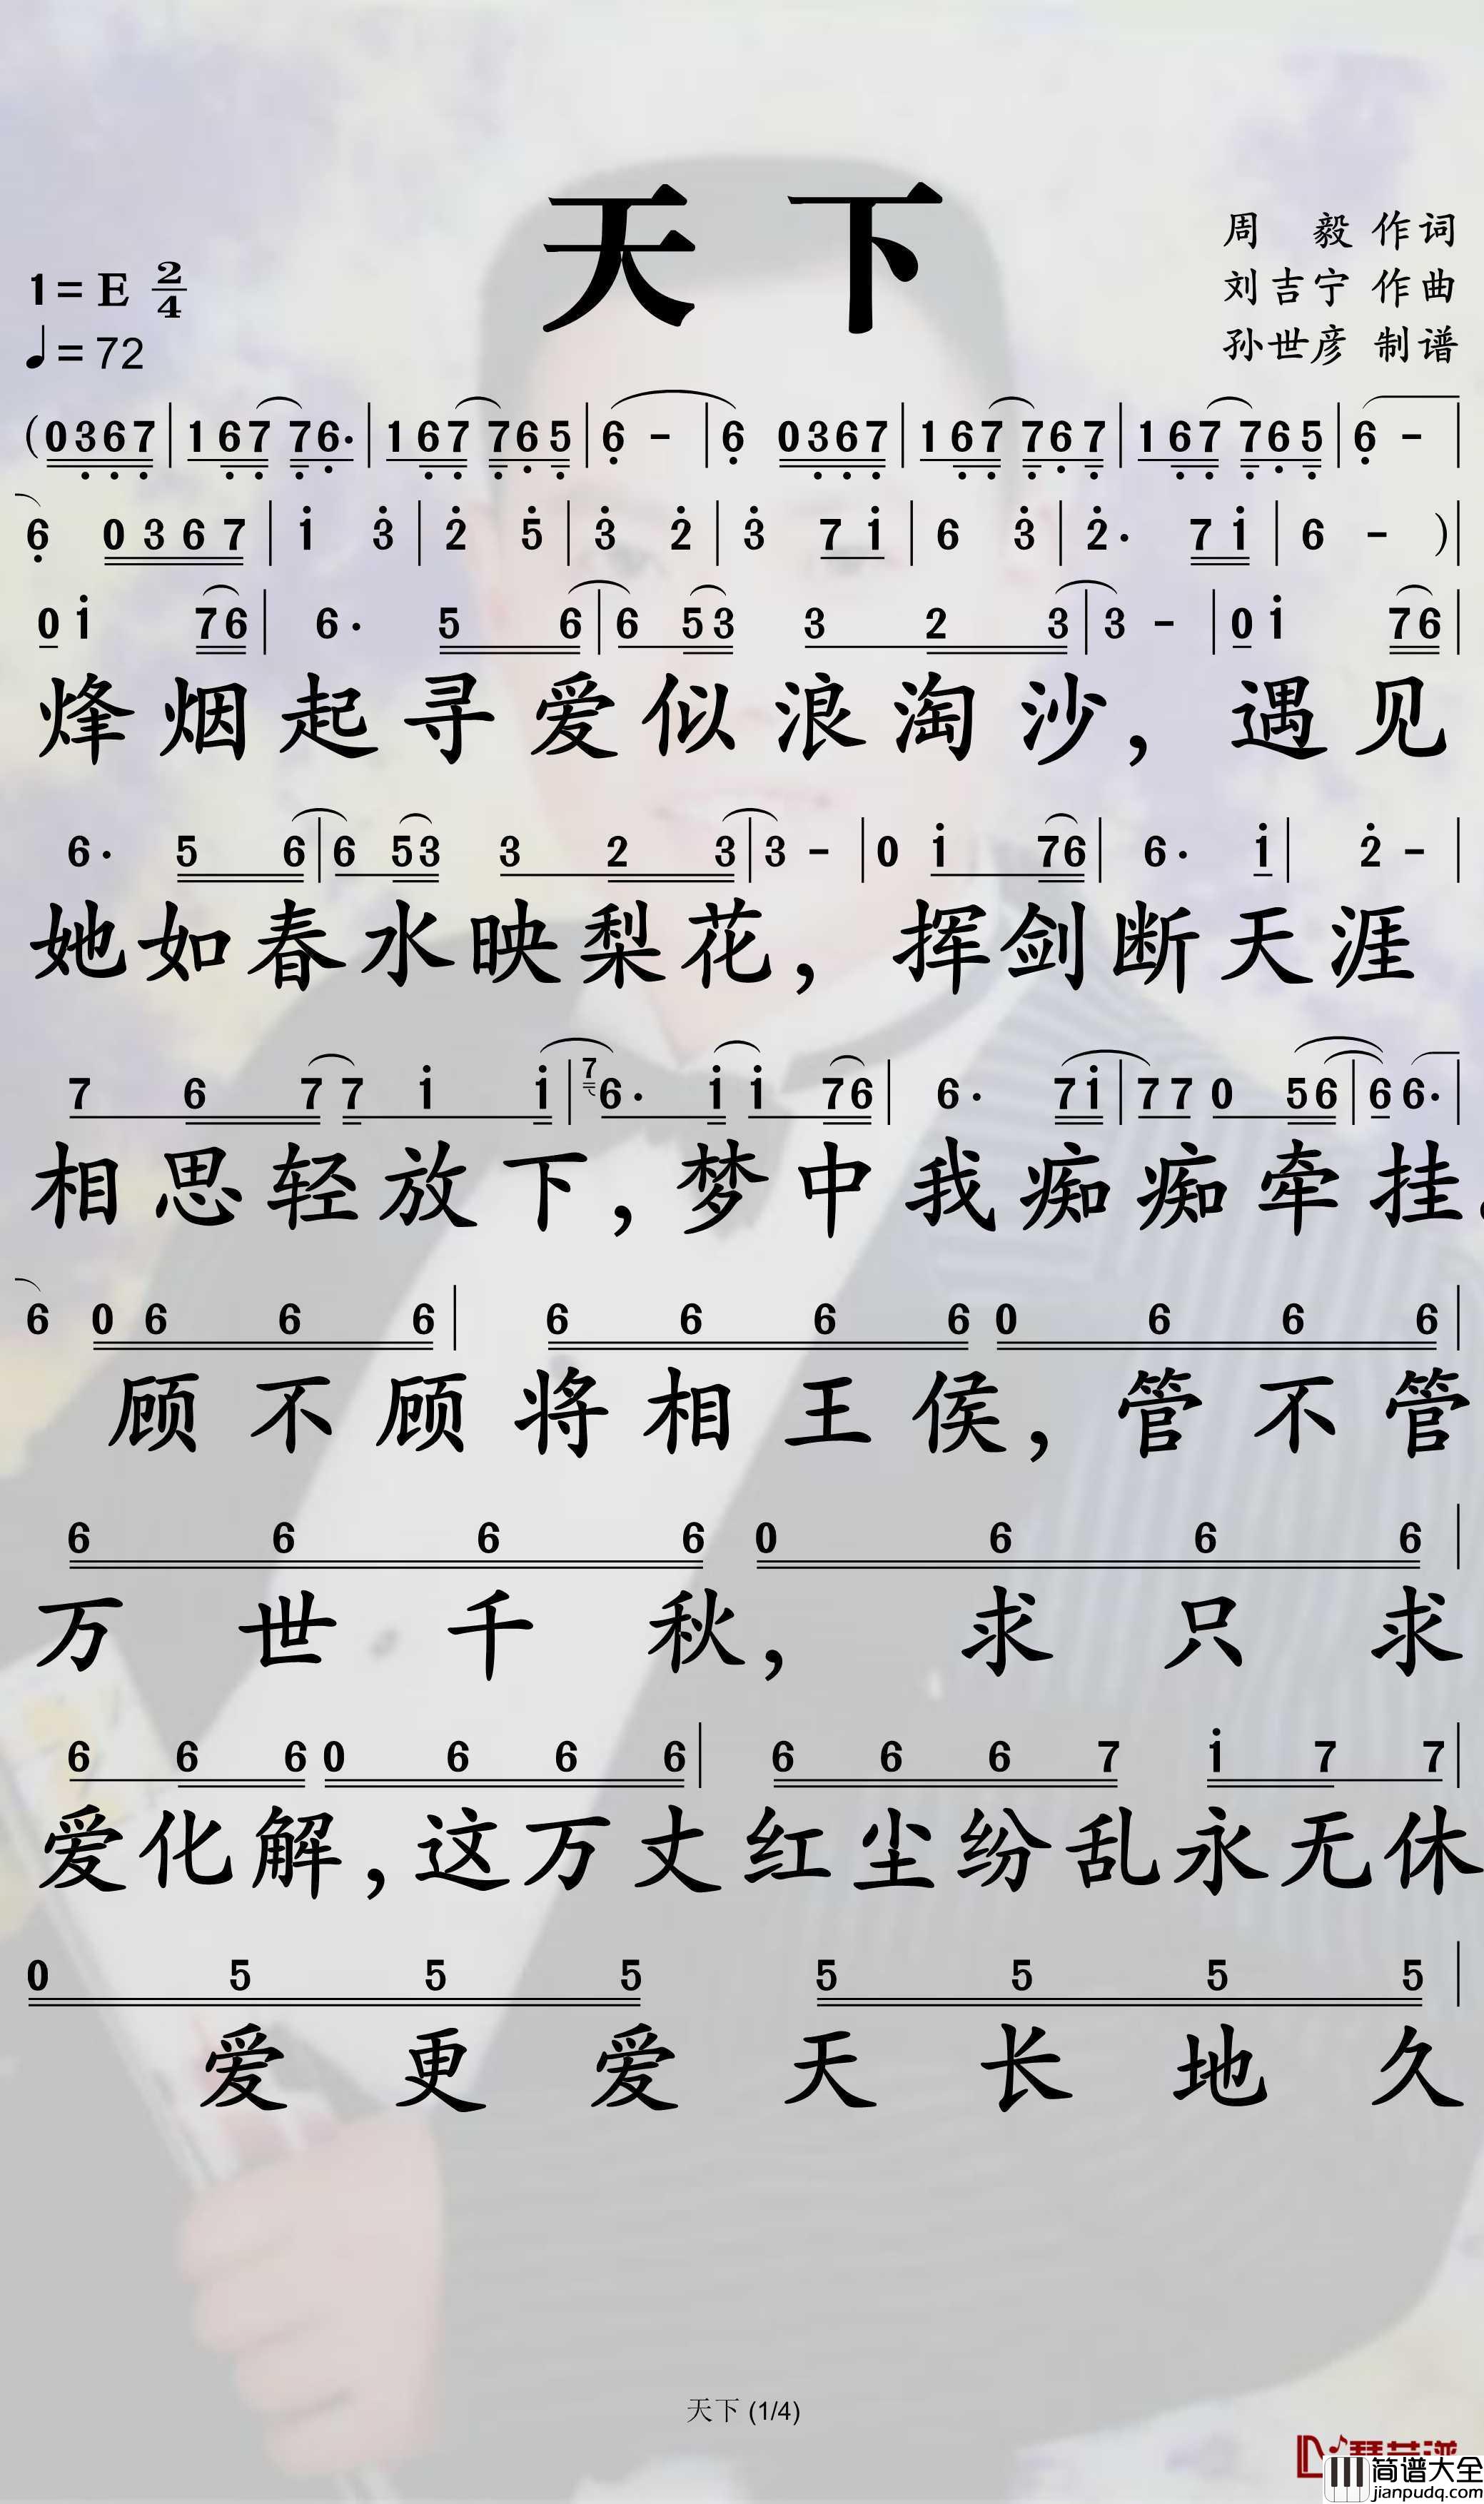 天下
周 毅 作词
刘吉宁 作曲
孙世彦 制谱
1=E 2/4
♩=72
(0367|167 76·|167 765|6 -|6 0367|167 767|167 765|6 -|
6 0367|1 3|2 5|3 2|3 71|6 3|2· 71|6 -)|
01 76|6· 56|653 323|3 -|01 76|
烽烟起寻爱似浪淘沙，遇见
6· 56|653 323|3 -|0 176|6· 1|2 -|
她如春水映梨花，挥剑断天涯
767711|7 6· 1176|6· 71|77 056|6 6·|
相思轻放下，梦中我痴痴牵挂。
6 0666|6666 0666|
顾不顾将相王侯，管不管
6666 0666|
万世千秋，求只求
666 0666|6667 177|
爱化解，这万丈红尘纷乱永无休
0555 5555|
爱更爱天长地久
天下 (1/4)
简谱大全
jianpudq.com